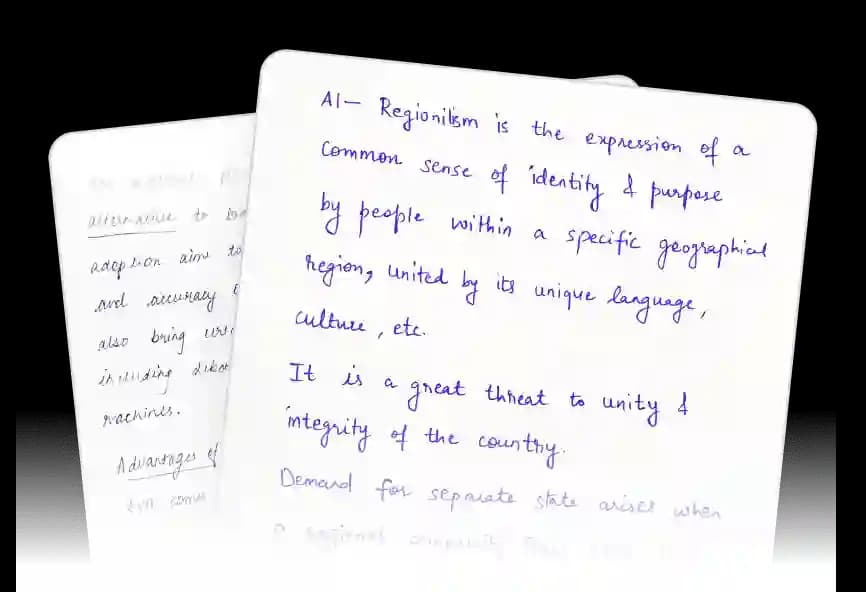 A1- Regionilism is the expression of a
common sense of identity & purpose
by people within a specific geographical
region, united by its unique language,
culture, etc.
It is a great threat to unity &
integrity of the country.
Demand for separate state arises when
alternative to
adoption aims to
and accuracy
also bring
including
machines.
Advantages of